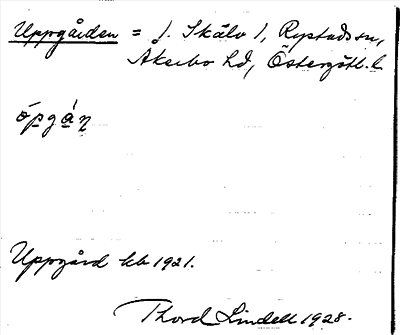 Uppgården = i. Skälv 1, Rystads sn,
Åkerbo hd, Östergötl. l.
ópgá̱ꞑ
Uppgård kb 1921.
Thord Lindell 1928.